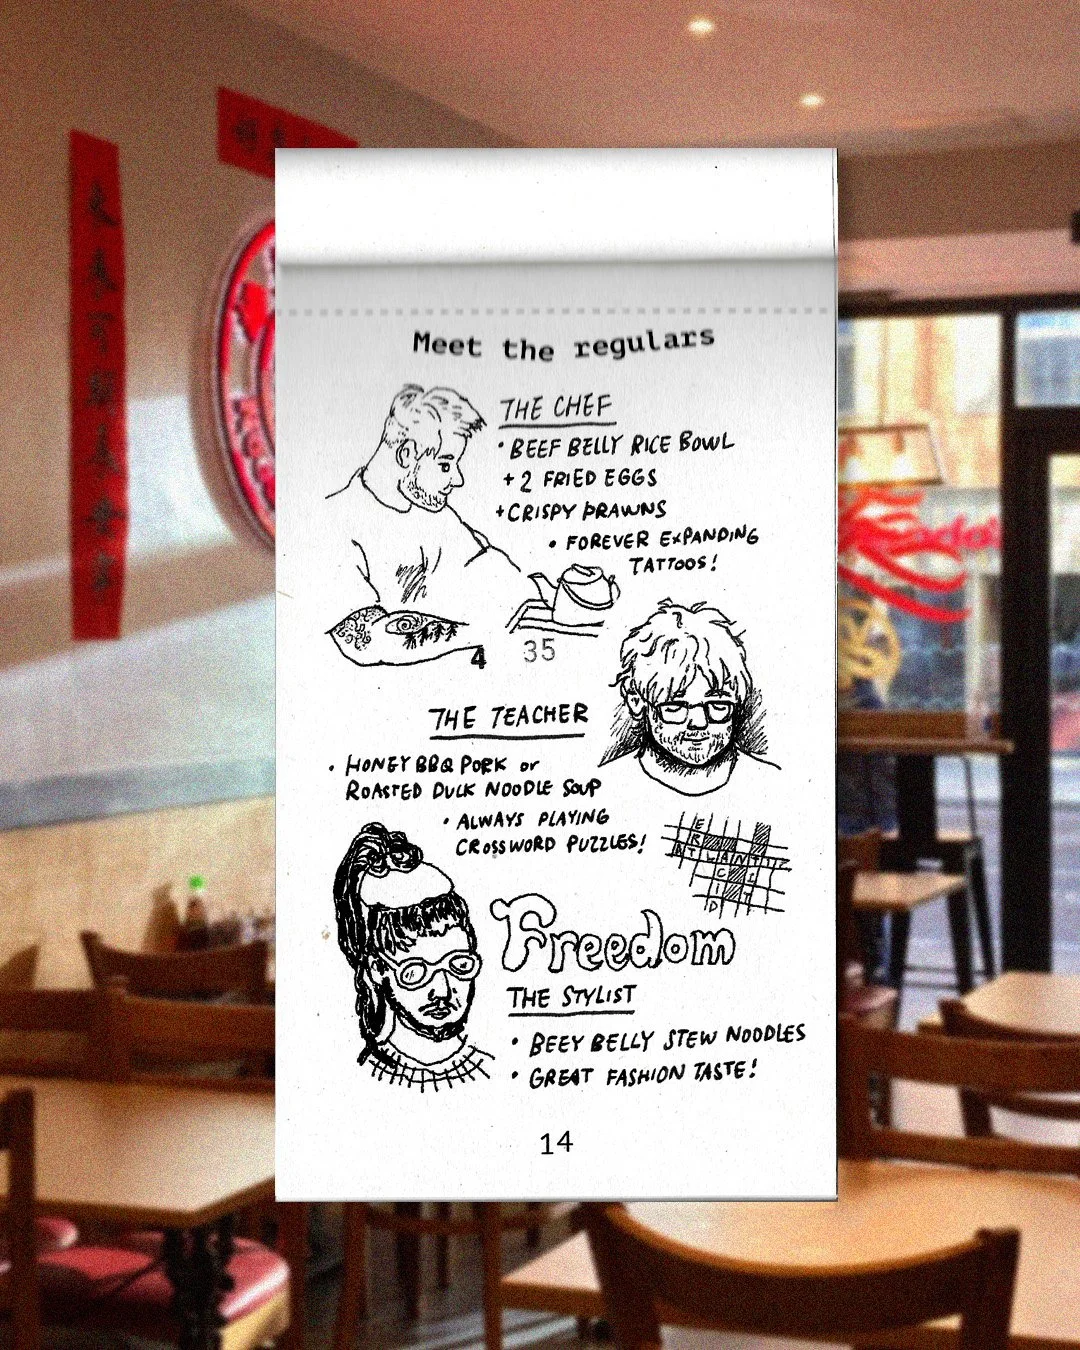 Meet the regulars
THE CHEF
• BEEF BELLY RICE BOWL
+ 2 FRIED EGGS
+ CRISPY PRAWNS
• FOREVER EXPANDING
TATTOOS!
4
35
THE TEACHER
• HONEY BBQ PORK or
ROASTED DUCK NOODLE SOUP
• ALWAYS PLAYING
CROSSWORD PUZZLES!
Freedom
THE STYLIST
• BEEY BELLY STEW NOODLES
• GREAT FASHION TASTE!
14